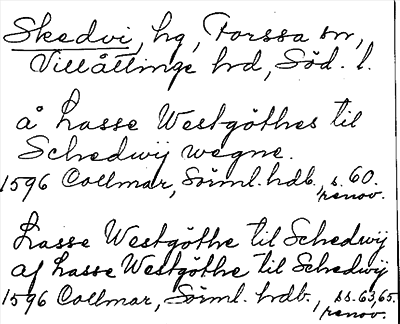 Skedvi, hg, Forssa sn,
Villåttinge hd, Söd. l.
å Lasse Westgöthes til
Schedwij wegne.
1596 Collmar, Sörml. hdb., s. 60.
renov.
Lasse Westgöthe til Schedwij
af Lasse Westgöthe til Schedwij
1596 Collmar, Sörml. hdb., ss. 63, 65.
renov.